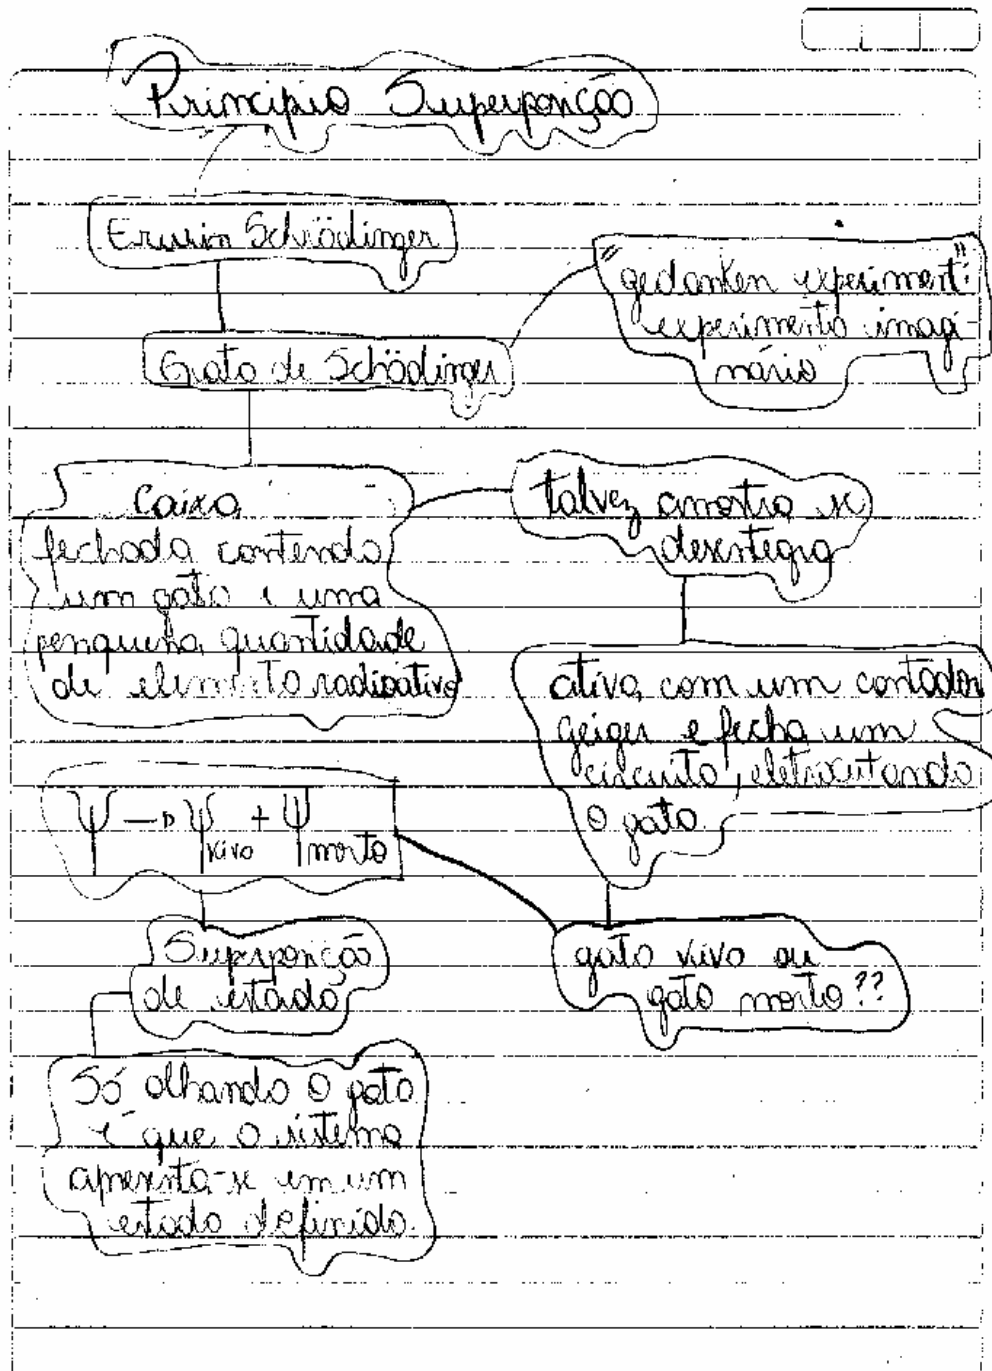 Principio Superposição
Erwin Schrödinger
"gedanken experiment":
experimento imagi-
nário
Gato de Schödinger
Caixa
fechada contendo
um gato e uma
penquena quantidade
de elemento radioativo
talvez amostra se
desintegra
ativa com um contador
geiger e fecha um
circuito, eletrocutando
o gato
Ψ → Ψvivo + Ψmorto
Superposição
de estado
gato vivo ou
gato morto??
Só olhando o gato
é que o sistema
apresenta-se em um
estado definido.